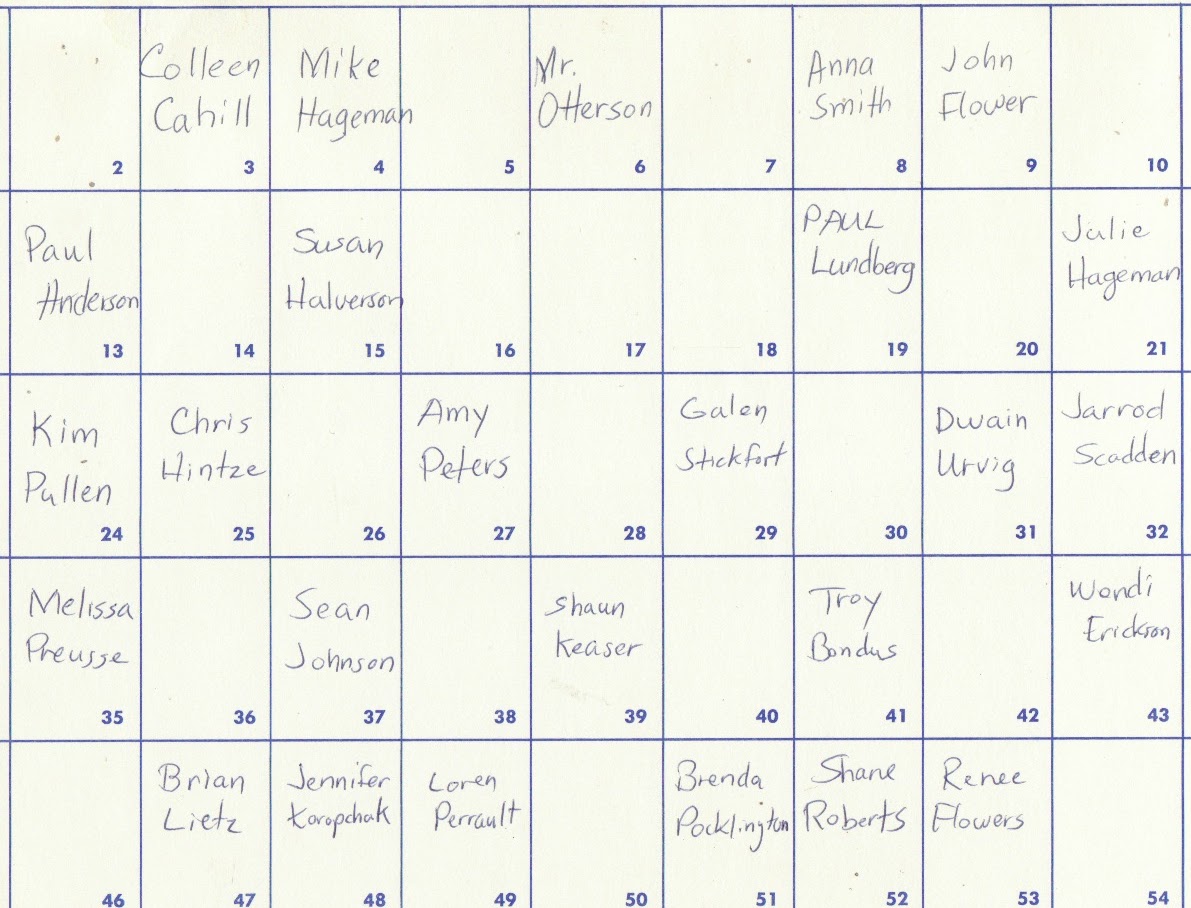 Colleen
Cahill
Mike
Hageman
Mr.
Otterson
Anna
Smith
John
Flower
2 3 4 5 6 7 8 9 10
Paul
Anderson
Susan
Halverson
PAUL
Lundberg
Julie
Hageman
13 14 15 16 17 18 19 20 21
Kim
Pullen
Chris
Hintze
Amy
Peters
Galen
Stickfort
Dwain
Urvig
Jarrod
Scadden
24 25 26 27 28 29 30 31 32
Melissa
Preusse
Sean
Johnson
Shaun
Keaser
Troy
Bondus
Wendi
Erickson
35 36 37 38 39 40 41 42 43
Brian
Lietz
Jennifer
Koropchak
Loren
Perrault
Brenda
Pocklington
Shane
Roberts
Renee
Flowers
46 47 48 49 50 51 52 53 54